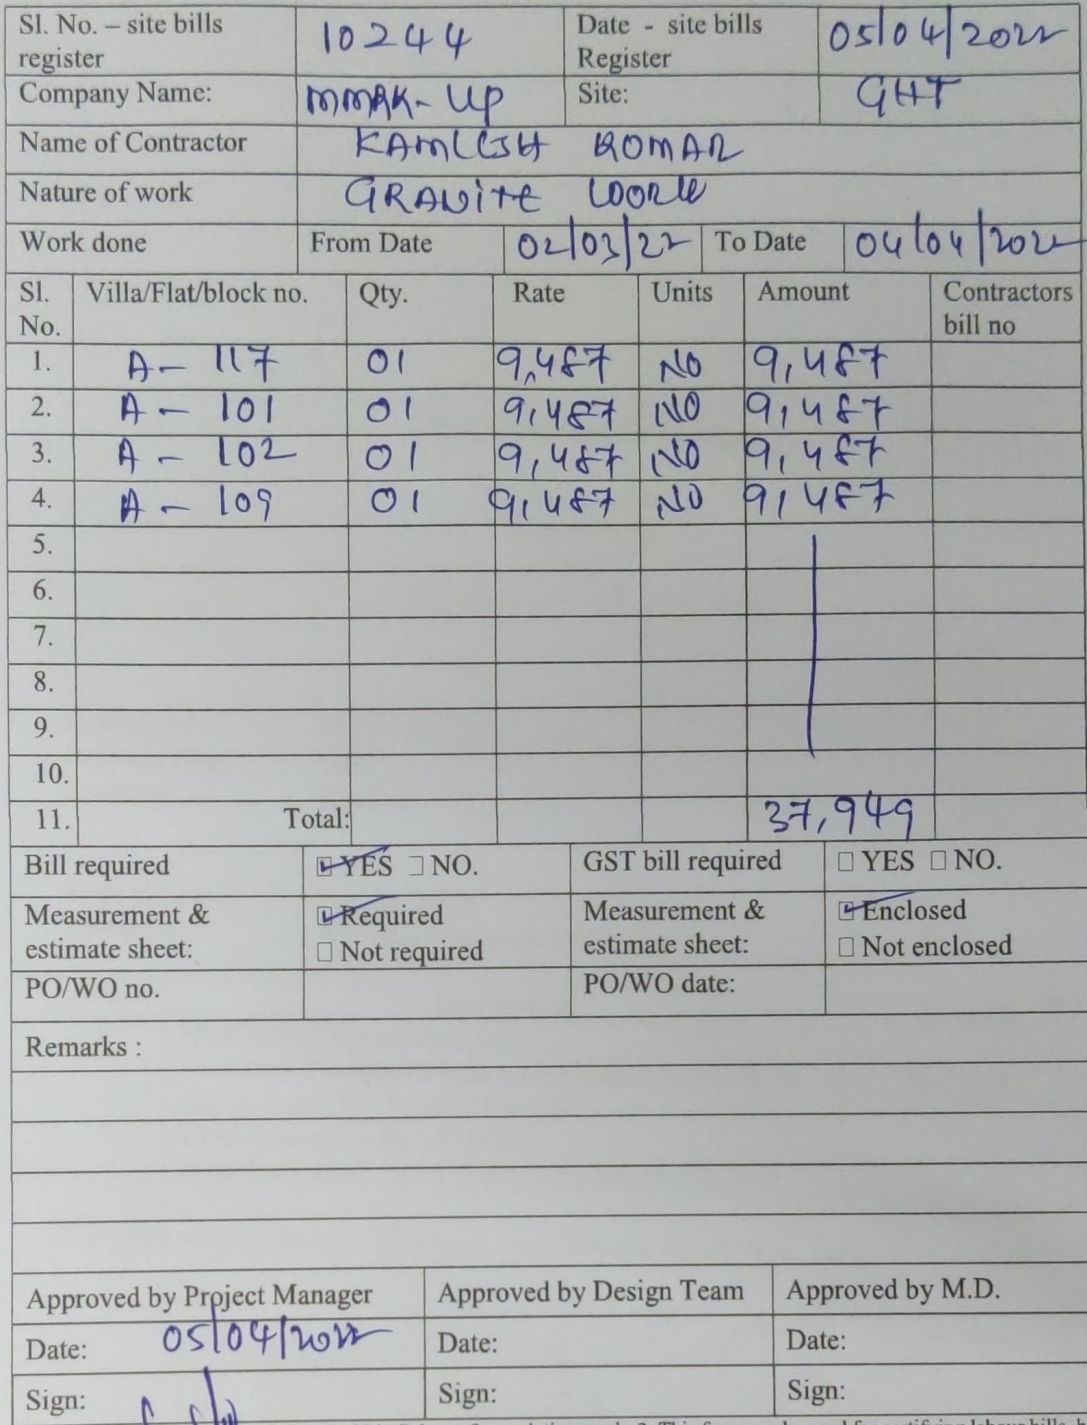 Sl. No. – site bills register 10244 Date - site bills Register 05/04/2022
Company Name: MMRK-UP Site: GHT
Name of Contractor KAMLESH KOMAR
Nature of work GRANITE WORK
Work done From Date 02/03/22 To Date 04/04/2022
Sl. No. Villa/Flat/block no. Qty. Rate Units Amount Contractors bill no
1. A - 117 01 9,487 NO 9,487
2. A - 101 01 9,487 NO 9,487
3. A - 102 01 9,487 NO 9,487
4. A - 109 01 9,487 NO 9,487
5.
6.
7.
8.
9.
10.
11. Total: 37,949
Bill required ☑ YES ☐ NO. GST bill required ☐ YES ☐ NO.
Measurement & estimate sheet: ☑ Required ☐ Not required Measurement & estimate sheet: ☑ Enclosed ☐ Not enclosed
PO/WO no. PO/WO date:
Remarks :
Approved by Project Manager Approved by Design Team Approved by M.D.
Date: 05/04/2022 Date: Date:
Sign: Sign: Sign: